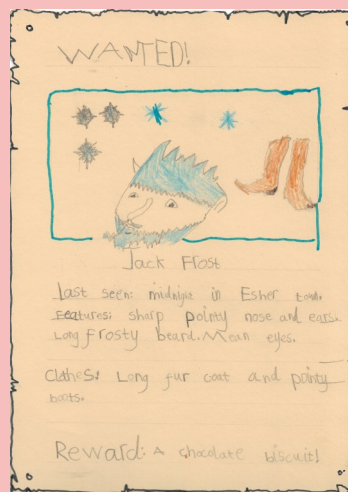 WANTED!
Jack Frost
last seen: midnight in Esher town.
Features: sharp pointy nose and ears.
Long frosty beard. Mean eyes.
Clothes: Long fur coat and pointy
boots.
Reward: A chocolate biscuit!